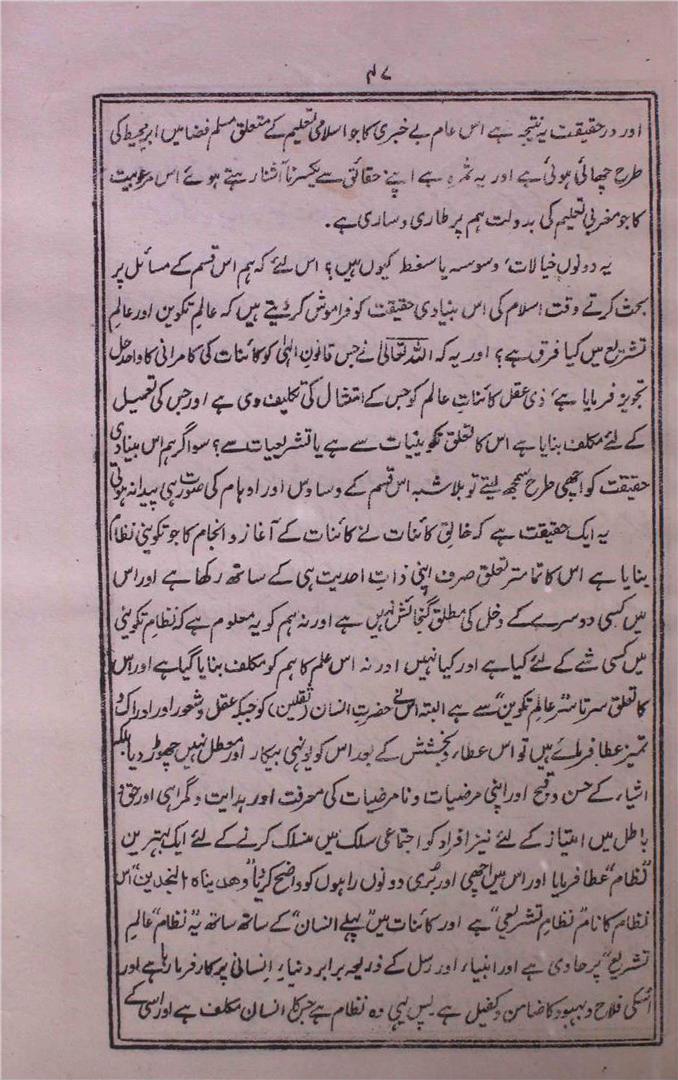 ۴۷
اور درحقیقت یہ نتیجہ ہے اس عام بے خبری کا جو اسلامی تعلیم کے متعلق مسلم فضا میں ابرِ محیط کی
طرح چھائی ہوئی ہے اور یہ ثمرہ ہے اپنے حقائق سے یکسر ناآشنا رہتے ہوئے اس مرعوبیت
کا جو مغربی تعلیم کی بدولت ہم پر طاری و ساری ہے۔
یہ دونوں خیالات، وسوسہ یا سفسطہ کیوں ہیں؟ اس لئے کہ ہم اس قسم کے مسائل پر
بحث کرتے وقت اسلام کی اس بنیادی حقیقت کو فراموش کر دیتے ہیں کہ عالمِ تکوین اور عالمِ
تشریع میں کیا فرق ہے؟ اور یہ کہ اللہ تعالیٰ نے جس قانونِ الٰہی کو کائنات کی کامرانی کا واحد حل
تجویز فرمایا ہے، ذی عقل کائناتِ عالم کو جس کے امتثال کی تکلیف دی ہے اور جس کی تعمیل
کے لئے مکلف بنایا ہے اس کا تعلق تکوینیات سے ہے یا تشریعیات سے؟ سو اگر ہم اس بنیادی
حقیقت کو اچھی طرح سمجھ لیتے تو بلاشبہ اس قسم کے وساوس اور اوہام کی صورت ہی پیدا نہ ہوتی
یہ ایک حقیقت ہے کہ خالقِ کائنات نے کائنات کے آغاز و انجام کا جو تکوینی نظام
بنایا ہے اس کا تمامتر تعلق صرف اپنی ذاتِ احدیت ہی کے ساتھ رکھا ہے اور اس
میں کسی دوسرے کے دخل کی مطلق گنجائش نہیں ہے اور نہ ہم کو یہ معلوم ہے کہ نظامِ تکوینی
میں کسی شے کے لئے کیا ہے اور کیا نہیں اور نہ اس علم کا ہم کو مکلف بنایا گیا ہے اور اس
کا تعلق سرتاسر "عالمِ تکوین" سے ہے البتہ اس نے حضرتِ انسان (ثقلین) کو جبکہ عقل و شعور اور ادراک و
تمیز عطا فرمائے ہیں تو اس عطاء و بخشش کے بعد اس کو یونہی بیکار اور معطل نہیں چھوڑ دیا بلکہ
اشیاء کے حسن و قبح اور اپنی مرضیات و نامرضیات کی معرفت اور ہدایت و گمراہی اور حق و
باطل میں امتیاز کے لئے نیز افراد کو اجتماعی سلک میں منسلک کرنے کے لئے ایک بہترین
"نظام" عطا فرمایا اور اس میں اچھی اور بُری دونوں راہوں کو واضح کر دیا "وھدیناہ النجدین" اس
نظام کا نام "نظامِ تشریعی" ہے اور کائنات میں "پہلے انسان" کے ساتھ ساتھ یہ "نظام" عالمِ
تشریع" پر حاوی ہے اور انبیاء اور رسل کے ذریعہ برابر دنیاءِ انسانی پر کارفرما رہا ہے اور
اسکی فلاح و بہبود کا ضامن و کفیل ہے پس یہی وہ نظام ہے جس کا انسان مکلف ہے اور اسی کے